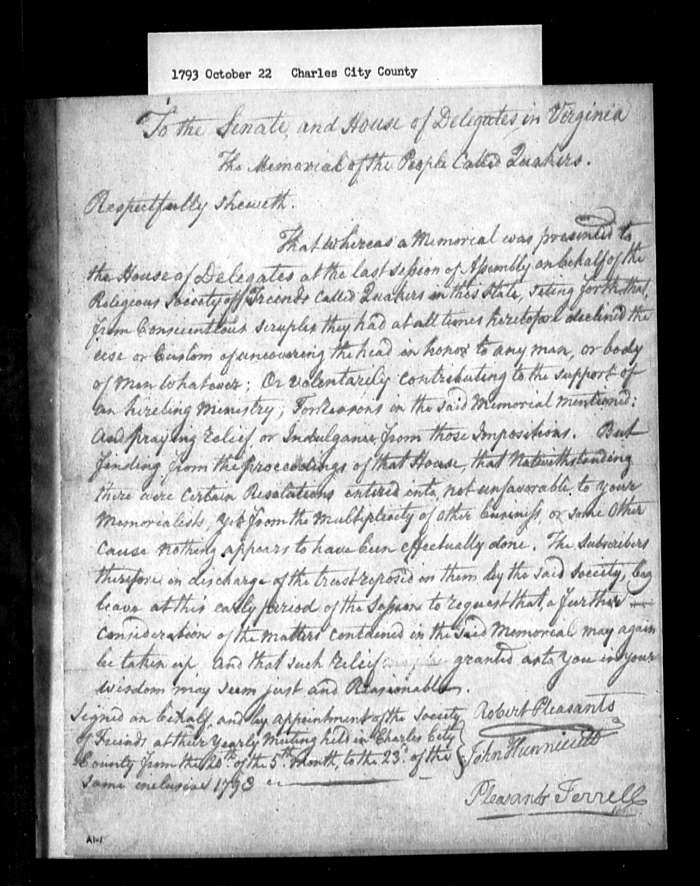 1793 October 22 Charles City County
To the Senate, and House of Delegates, in Virginia
The Memorial of the People Called Quakers.
Respectfully sheweth.
That whereas a Memorial was presented to
the House of Delegates at the last session of Assembly on behalf of the
Religeous Society of Freends Called Quakers in this State, seting forth that,
from Consciencious scruples they had at all times heretofore declined the
use or Custom of uncovering the head in honor to any man, or body
of Men whatever; Or volentarily contributing to the support of
an hireling Ministry; For Reasons in the said Memorial mentioned:
And praying relief or Indulgance from those Impositions. But
finding from the proceedings of that House, that Notwithstanding
there were Certain Resolutions entered into, not unfavorable to your
Memorialists, yet from the Multiplicity of other business, or some Other
Cause nothing appears to have been effectually done. The Subscribers
therefore in discharge of the trust reposed in them by the said Society, beg
leave at this early period of the Session to request that, a further
Consideration of the Matters contained in the said Memorial may again
be taken up, And that such relief granted as to You in your
wisdom may seem just and Reasonable.
Signed on behalf, and by appointment of the Society
of Friends at their Yearly Meeting held in Charles City
County from the 20th. of the 5th. Month, to the 23d. of the
same inclusive 1793
Robert Pleasants
John Hunnicutt
Pleasants Terrell
A1-1